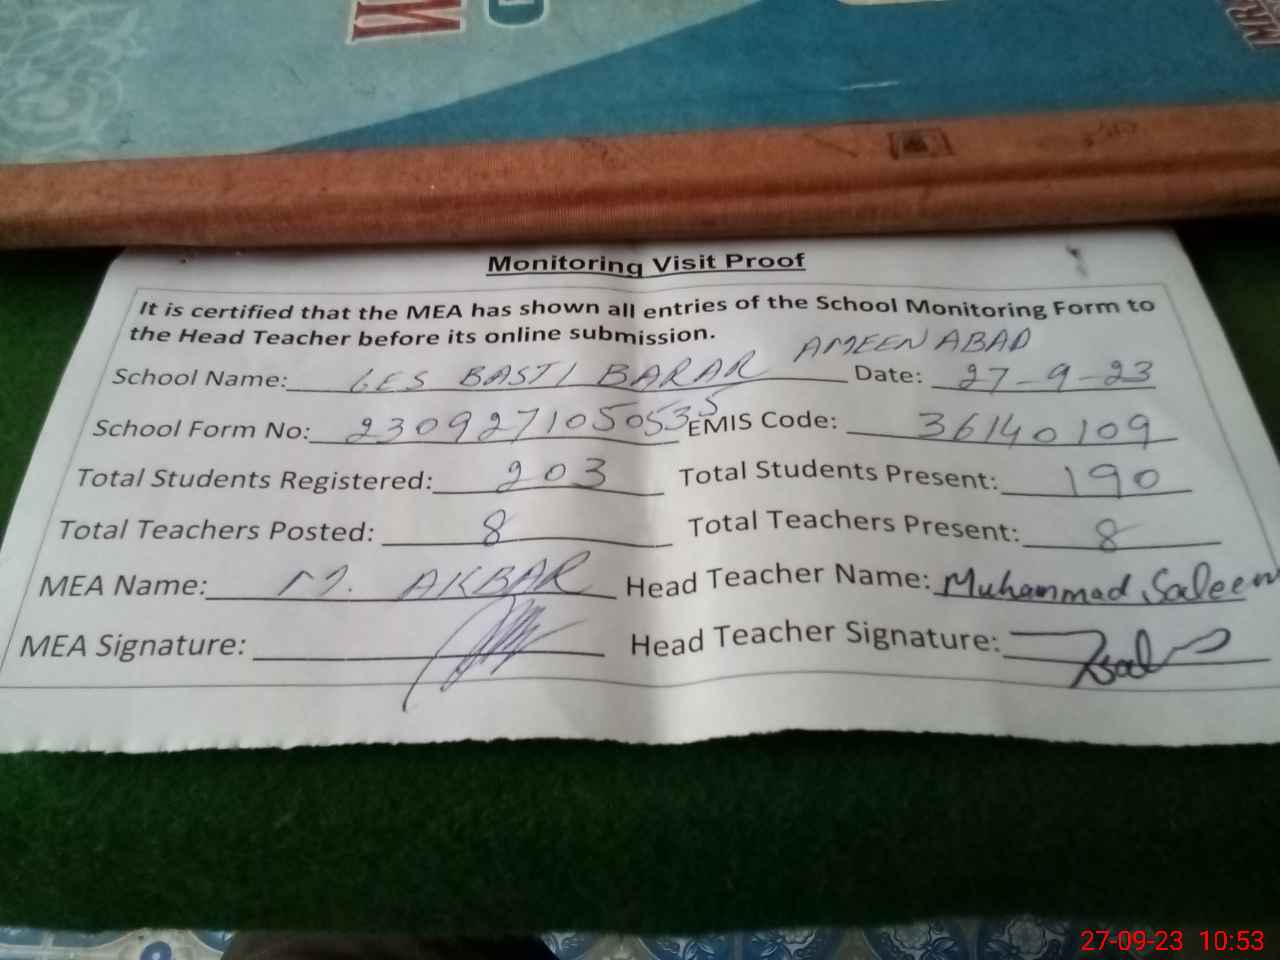 Monitoring Visit Proof
It is certified that the MEA has shown all entries of the School Monitoring Form to
the Head Teacher before its online submission.
School Name: GES BASTI BARAR AMEEN ABAD Date: 27-9-23
School Form No: 2309271050535 EMIS Code: 36140109
Total Students Registered: 203 Total Students Present: 190
Total Teachers Posted: 8 Total Teachers Present: 8
MEA Name: M. AKBAR Head Teacher Name: Muhammad Saleem
MEA Signature: Head Teacher Signature:
27-09-23 10:53